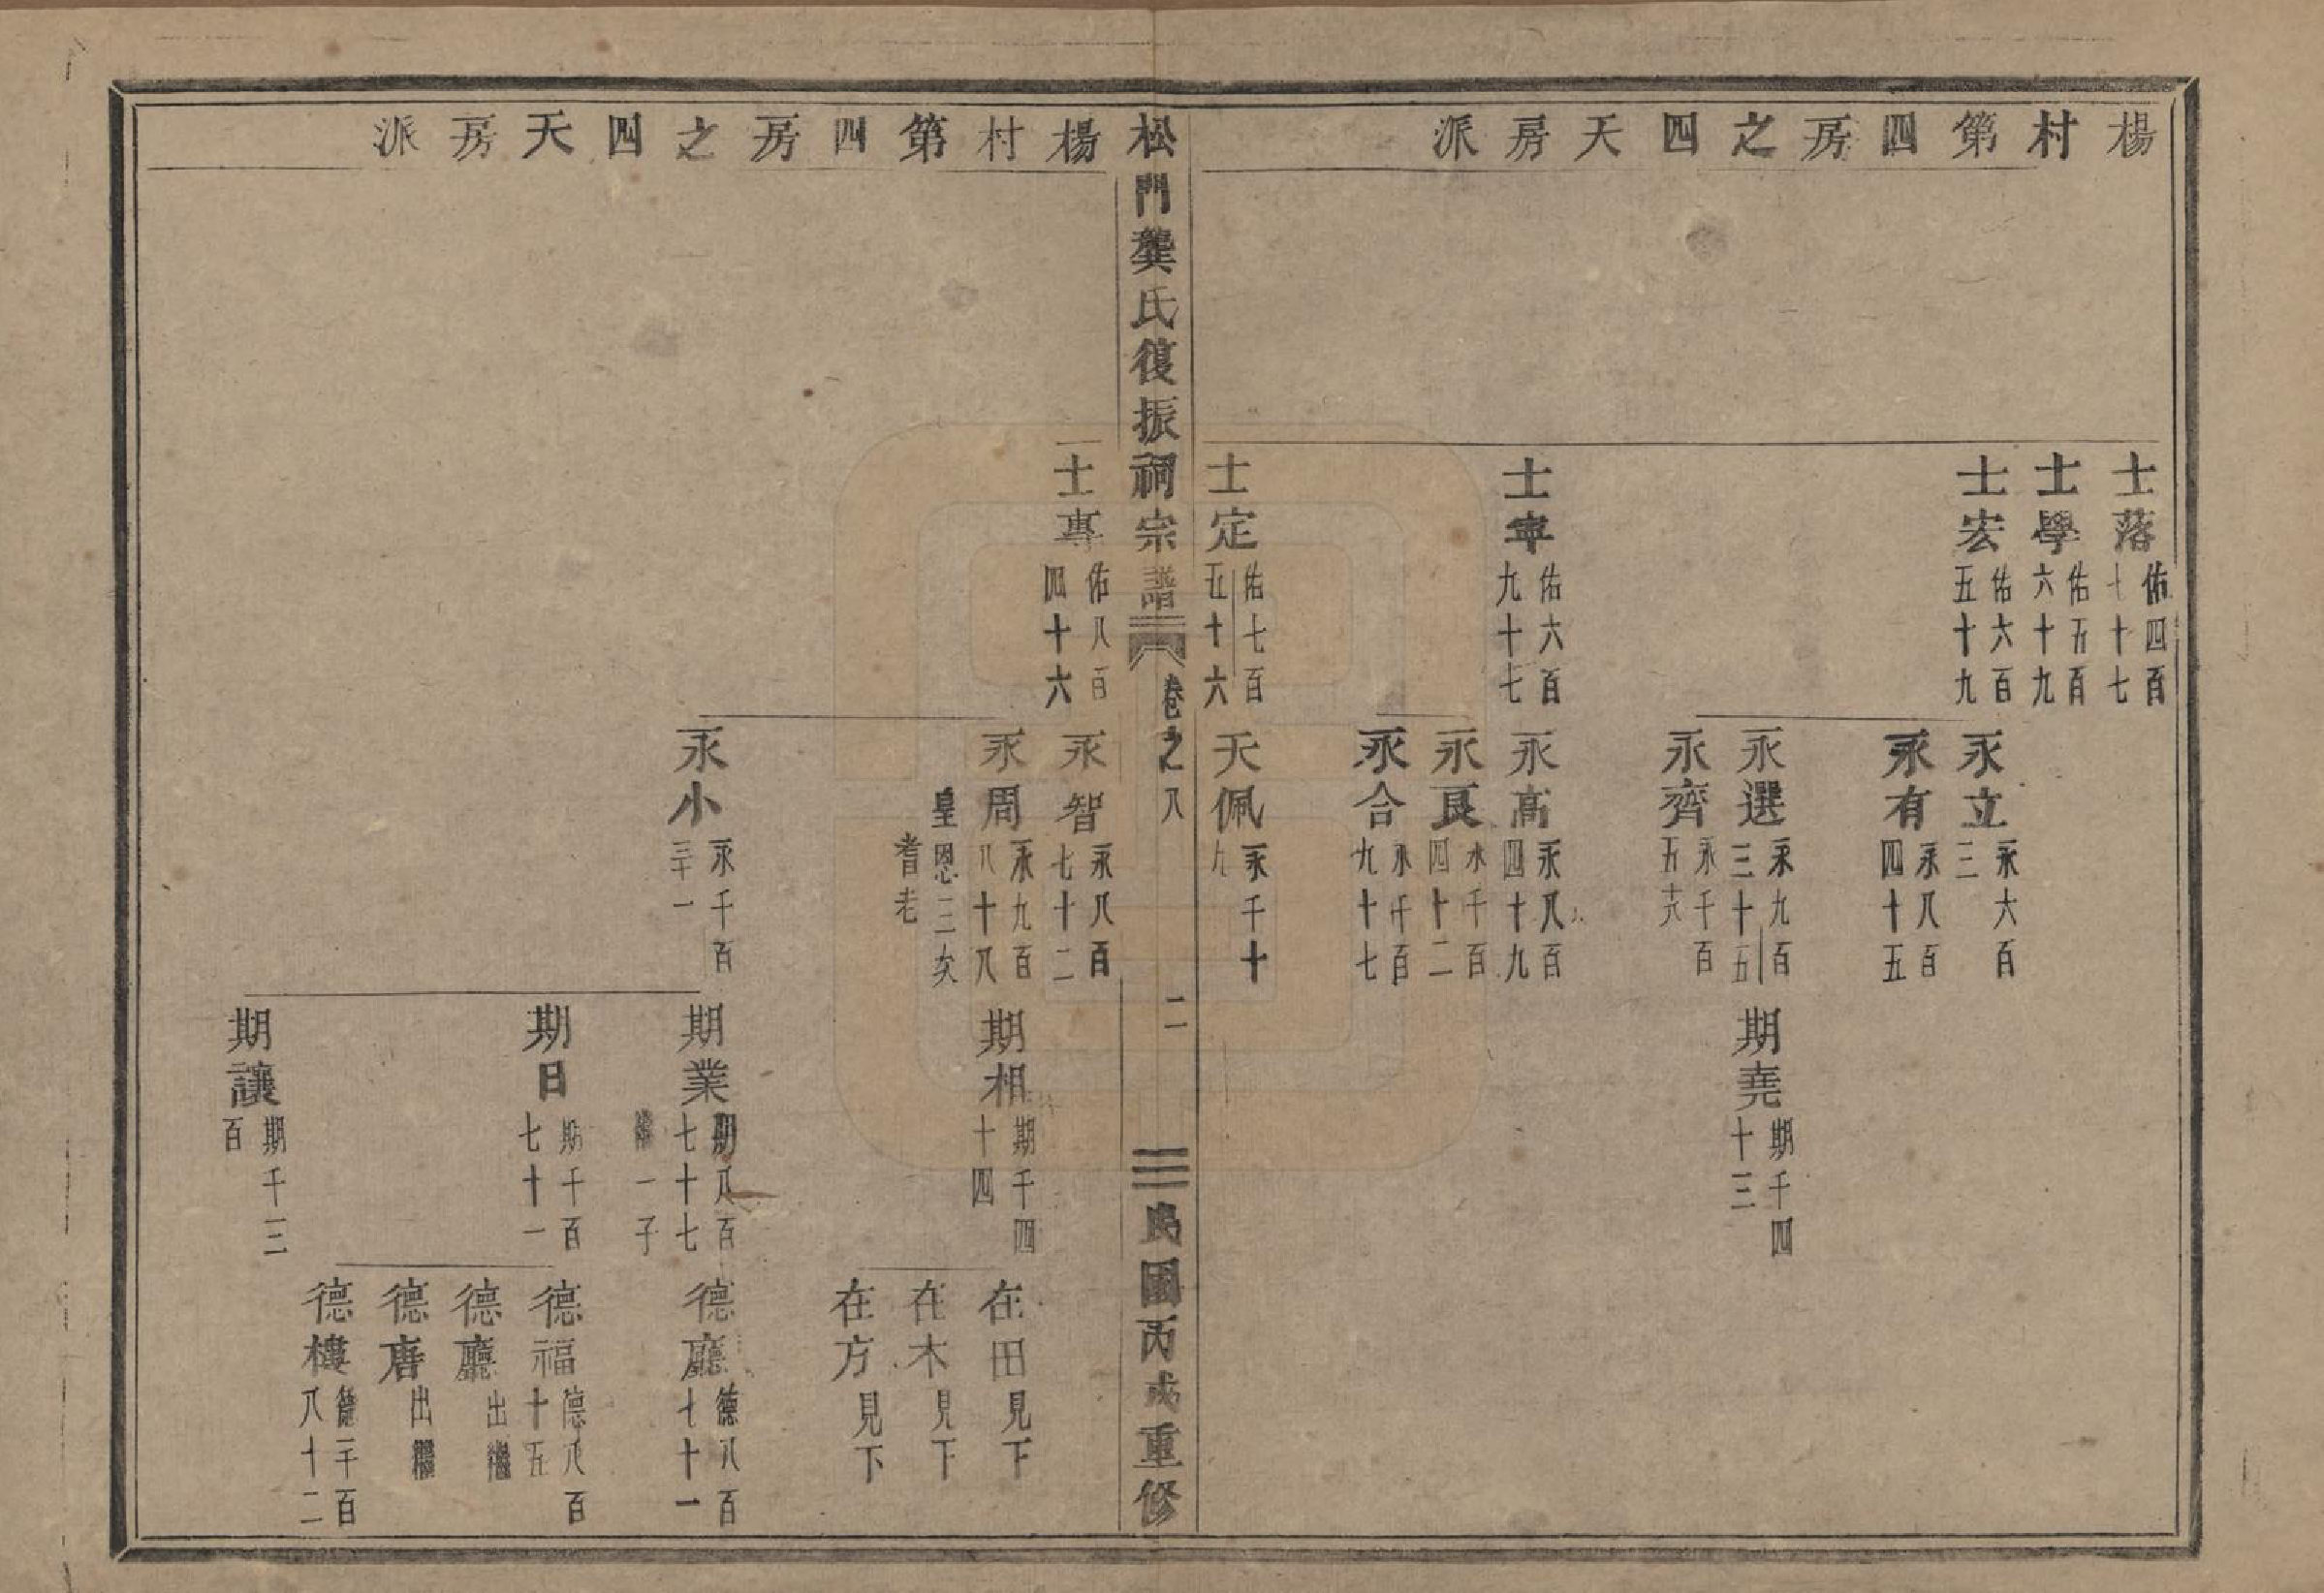 楊村第四房之四天房派
士落 佑四百七十七
士學 佑五百六十九
士宏 佑六百五十九
士寧 佑六百九十七
士定 佑七百五十六
永立 永六百三
永有 永八百四十五
永選 永九百三十五
永齊 永千百五十六
永高 永八百四十九
永良 永千百四十二
永合 永千百九十七
天佩 永千十九
期堯 期千四十三
松門龔氏復振祠宗譜
卷之八
二
民國丙戌重修
楊村第四房之四天房派
士專 佑八百四十六
永智 永八百七十二
永周 永九百八十八
皇恩三次
耆老
永小 永千百三十一
期相 期千四十四
期業 期八百七十七
一子
期日 期千百七十一
期讓 期千三百
在田 見下
在木 見下
在方 見下
德廳 德八百七十一
德福 德八百十五
德廳 出繼
德唐 出繼
德樓 德二千百八十二